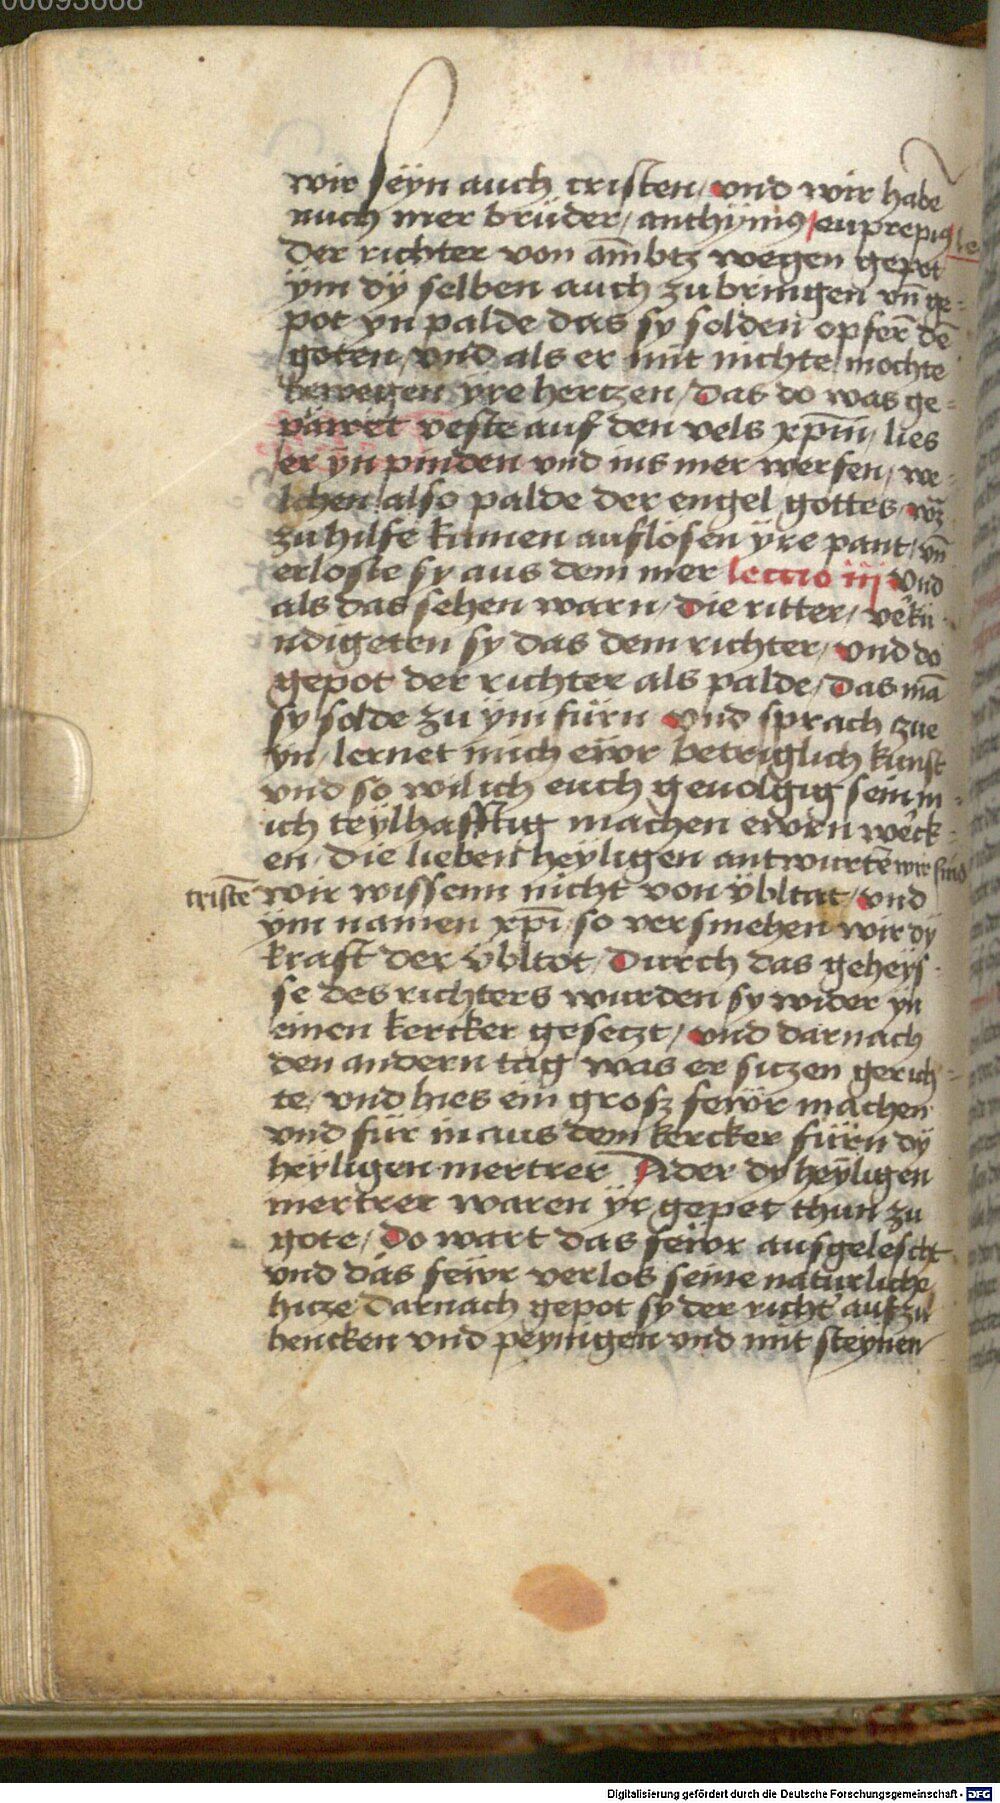 00093668
wir seÿn auch cristen / vnd wir habē
auch mer brüder / anthÿmiꝰ / euprepiꝰ le
der richter von am̄btz wegen gepot
ÿm dÿ selben auch zu bringen vn̄ ge=
pot yn palde das sy solden opfern̄ dē
goten / vnd als er mit nichte mochte
bewegen yre hertzen / das do was ge=
pawet veste auf den vels xp̄m / lies
er yn pinden vnd ins mer werfen / we=
lchen also palde der engel gottes / wz̄
zu hilfe kumen auflosen ÿre pant / vn̄
erloste sy aus dem mer lectio iij Vnd
als das sehen warn / die ritter / v̄kü=
ndigeten sy das dem richter / vnd do
gepot der richter als palde / das mā
sy solde zu ÿm fürn vnd sprach zue
yn / lernet mich ewr betriglich kunst
vnd so wil ich euch geuolgig sein m=
ich teÿlhafftig machen ewrn wērk=
en / die lieben heyligen antwurtē wir sind
cristē wir wissenn nicht von ÿbltat / vnd
ym namen xp̄i so versmehen wir dÿ
kraft der vbltot / Durch das geheys=
se des richters wurden sy wider yn
einen kercker gesetzt / vnd darnach
den andern tag was er sitzen gerich=
te / vnd hies ein grosz fewr machen
vnd für in aus dem kercker fürn dÿ
heÿligen mertrer Ader dy heyligen
mertrer waren ÿr gepet thun zu
gote / do wart das fewr ausgelescht
vnd das fewr verlos seine naturliche
hicze darnach gepot sy der richt̄ auf zu
hencken vnd peynigen vnd mit steynen
Digitalisierung gefördert durch die Deutsche Forschungsgemeinschaft - DFG